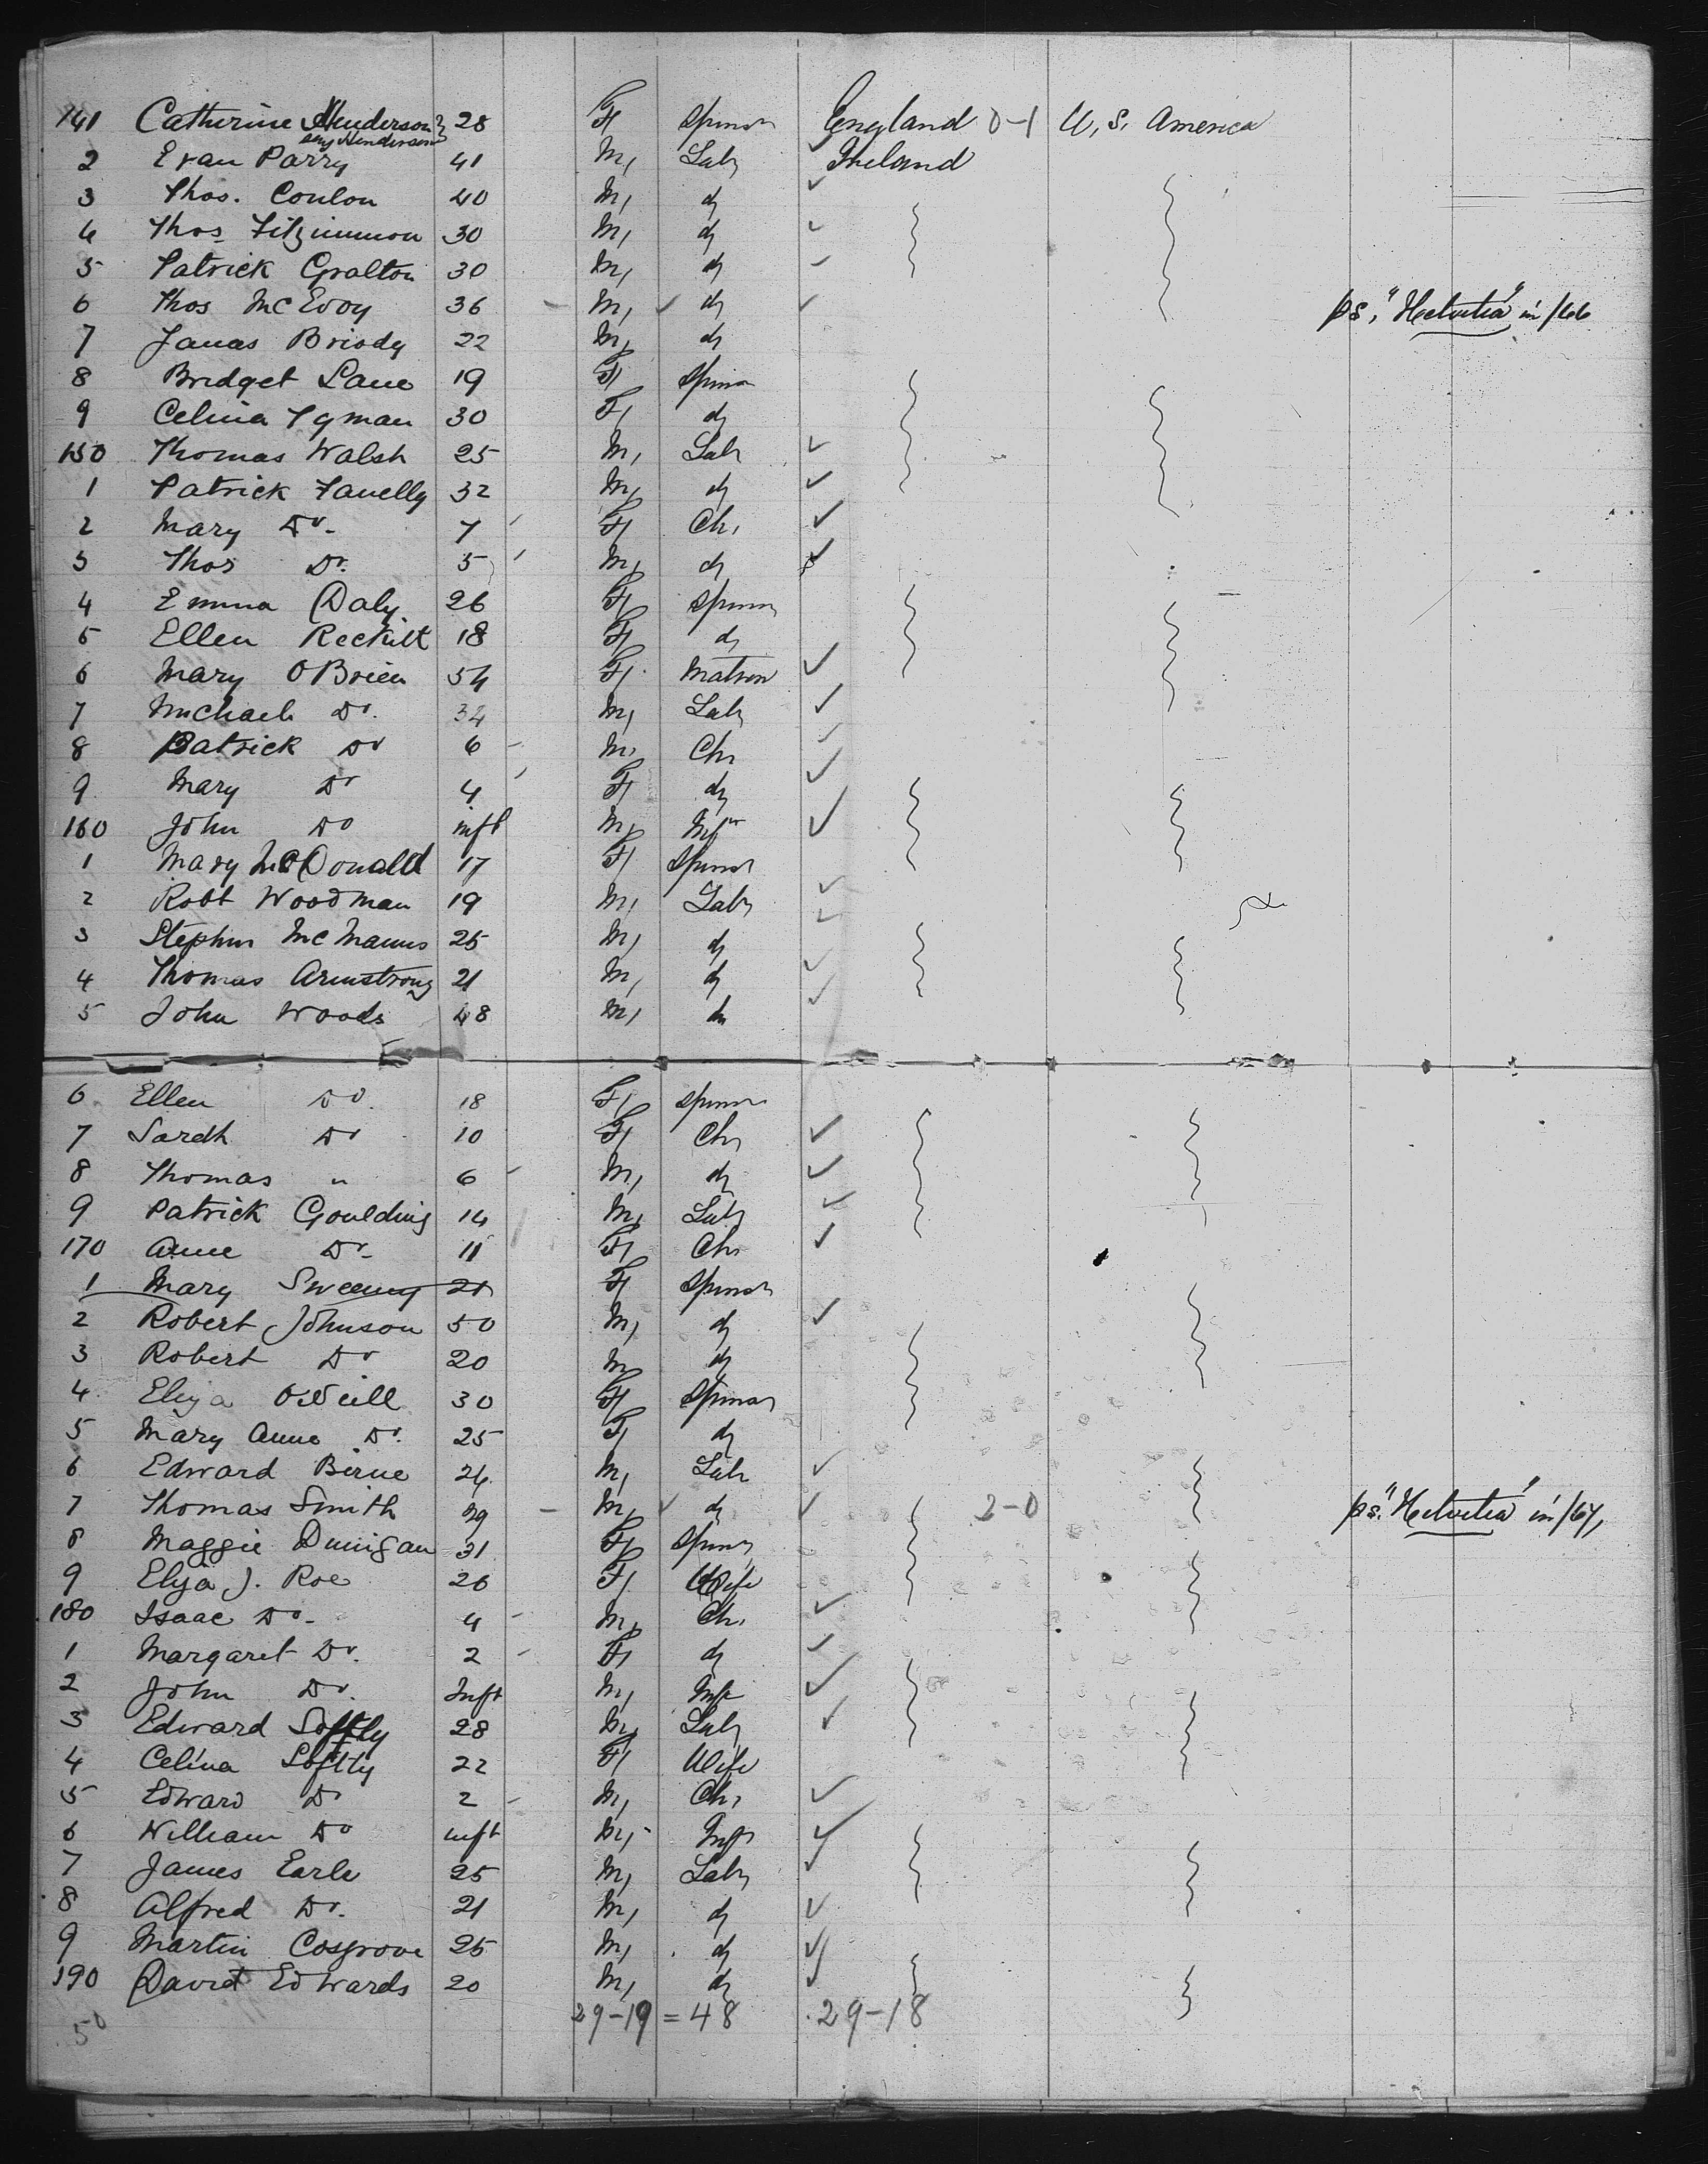 141 Catherine Henderson 28 F Spinsr England 0-1 U, S. America
say Henderson
2 Evan Parry 41 M, Labr Ireland
3 Thos. Conlon 40 M, do
4 Thos Fitzimmon 30 M, do
5 Patrick Gralton 30 M, do
6 Thos McEvoy 36 - M, do ps, "Helvetia" in /66
7 James Briody 22 M, do
8 Bridget Lane 19 F Spinsr
9 Celina 30 F do
150 Thomas Walsh 25 M, Labr
1 Patrick 32 M, do
2 Mary Do. 7 F Ch,
3 Thos Do. 5 M, do
4 Emma Daly 26 F Spinsr
5 Ellen Reckitt 18 F do
6 Mary OBrien 34 F Matron
7 Michael Do. 34 M, Labr
8 Patrick Do 6 - M, Ch,
9 Mary Do 4 F do
160 John Do inft M, Inft
1 Mary McDonald 17 F Spinsr
2 Robt Woodman 19 M, Labr
3 Stephen McManus 25 M, do
4 Thomas Armstrong 21 M, do
5 John Woods 48 M, do
6 Ellen Do. 18 F Spinsr
7 Sarah Do 10 F Ch,
8 Thomas " 6 - M, do
9 Patrick Goulding 14 M, Labr
170 Anne Do- 11 F Ch,
1 Mary Sweeny 21 F Spinsr
2 Robert Johnson 50 M, do
3 Robert Do 20 M, do
4 Eliza ONeill 30 F Spinsr
5 Mary Anne Do. 25 F do
6 Edward Birne 24 M, Labr
7 Thomas Smith 29 - M, do 2-0 ps. "Helvetia" in /67,
8 Maggie Dunigan 31 F Spinsr
9 Eliza J. Roe 26 F Wife
180 Isaac Do- 4 - M, Ch,
1 Margaret Do. 2 - F do
2 John Do. Inft M, Inft
3 Edward Softly 28 M, Labr
4 Celina Softly 22 F Wife
5 Edward Do 2 - M, Ch,
6 William Do inft M, Inft
7 James Earle 25 M, Labr
8 Alfred Do. 21 M, do
9 Martin Cosgrove 25 M, do
190 David Edwards 20 M, do
50 29-19 = 48 29-18